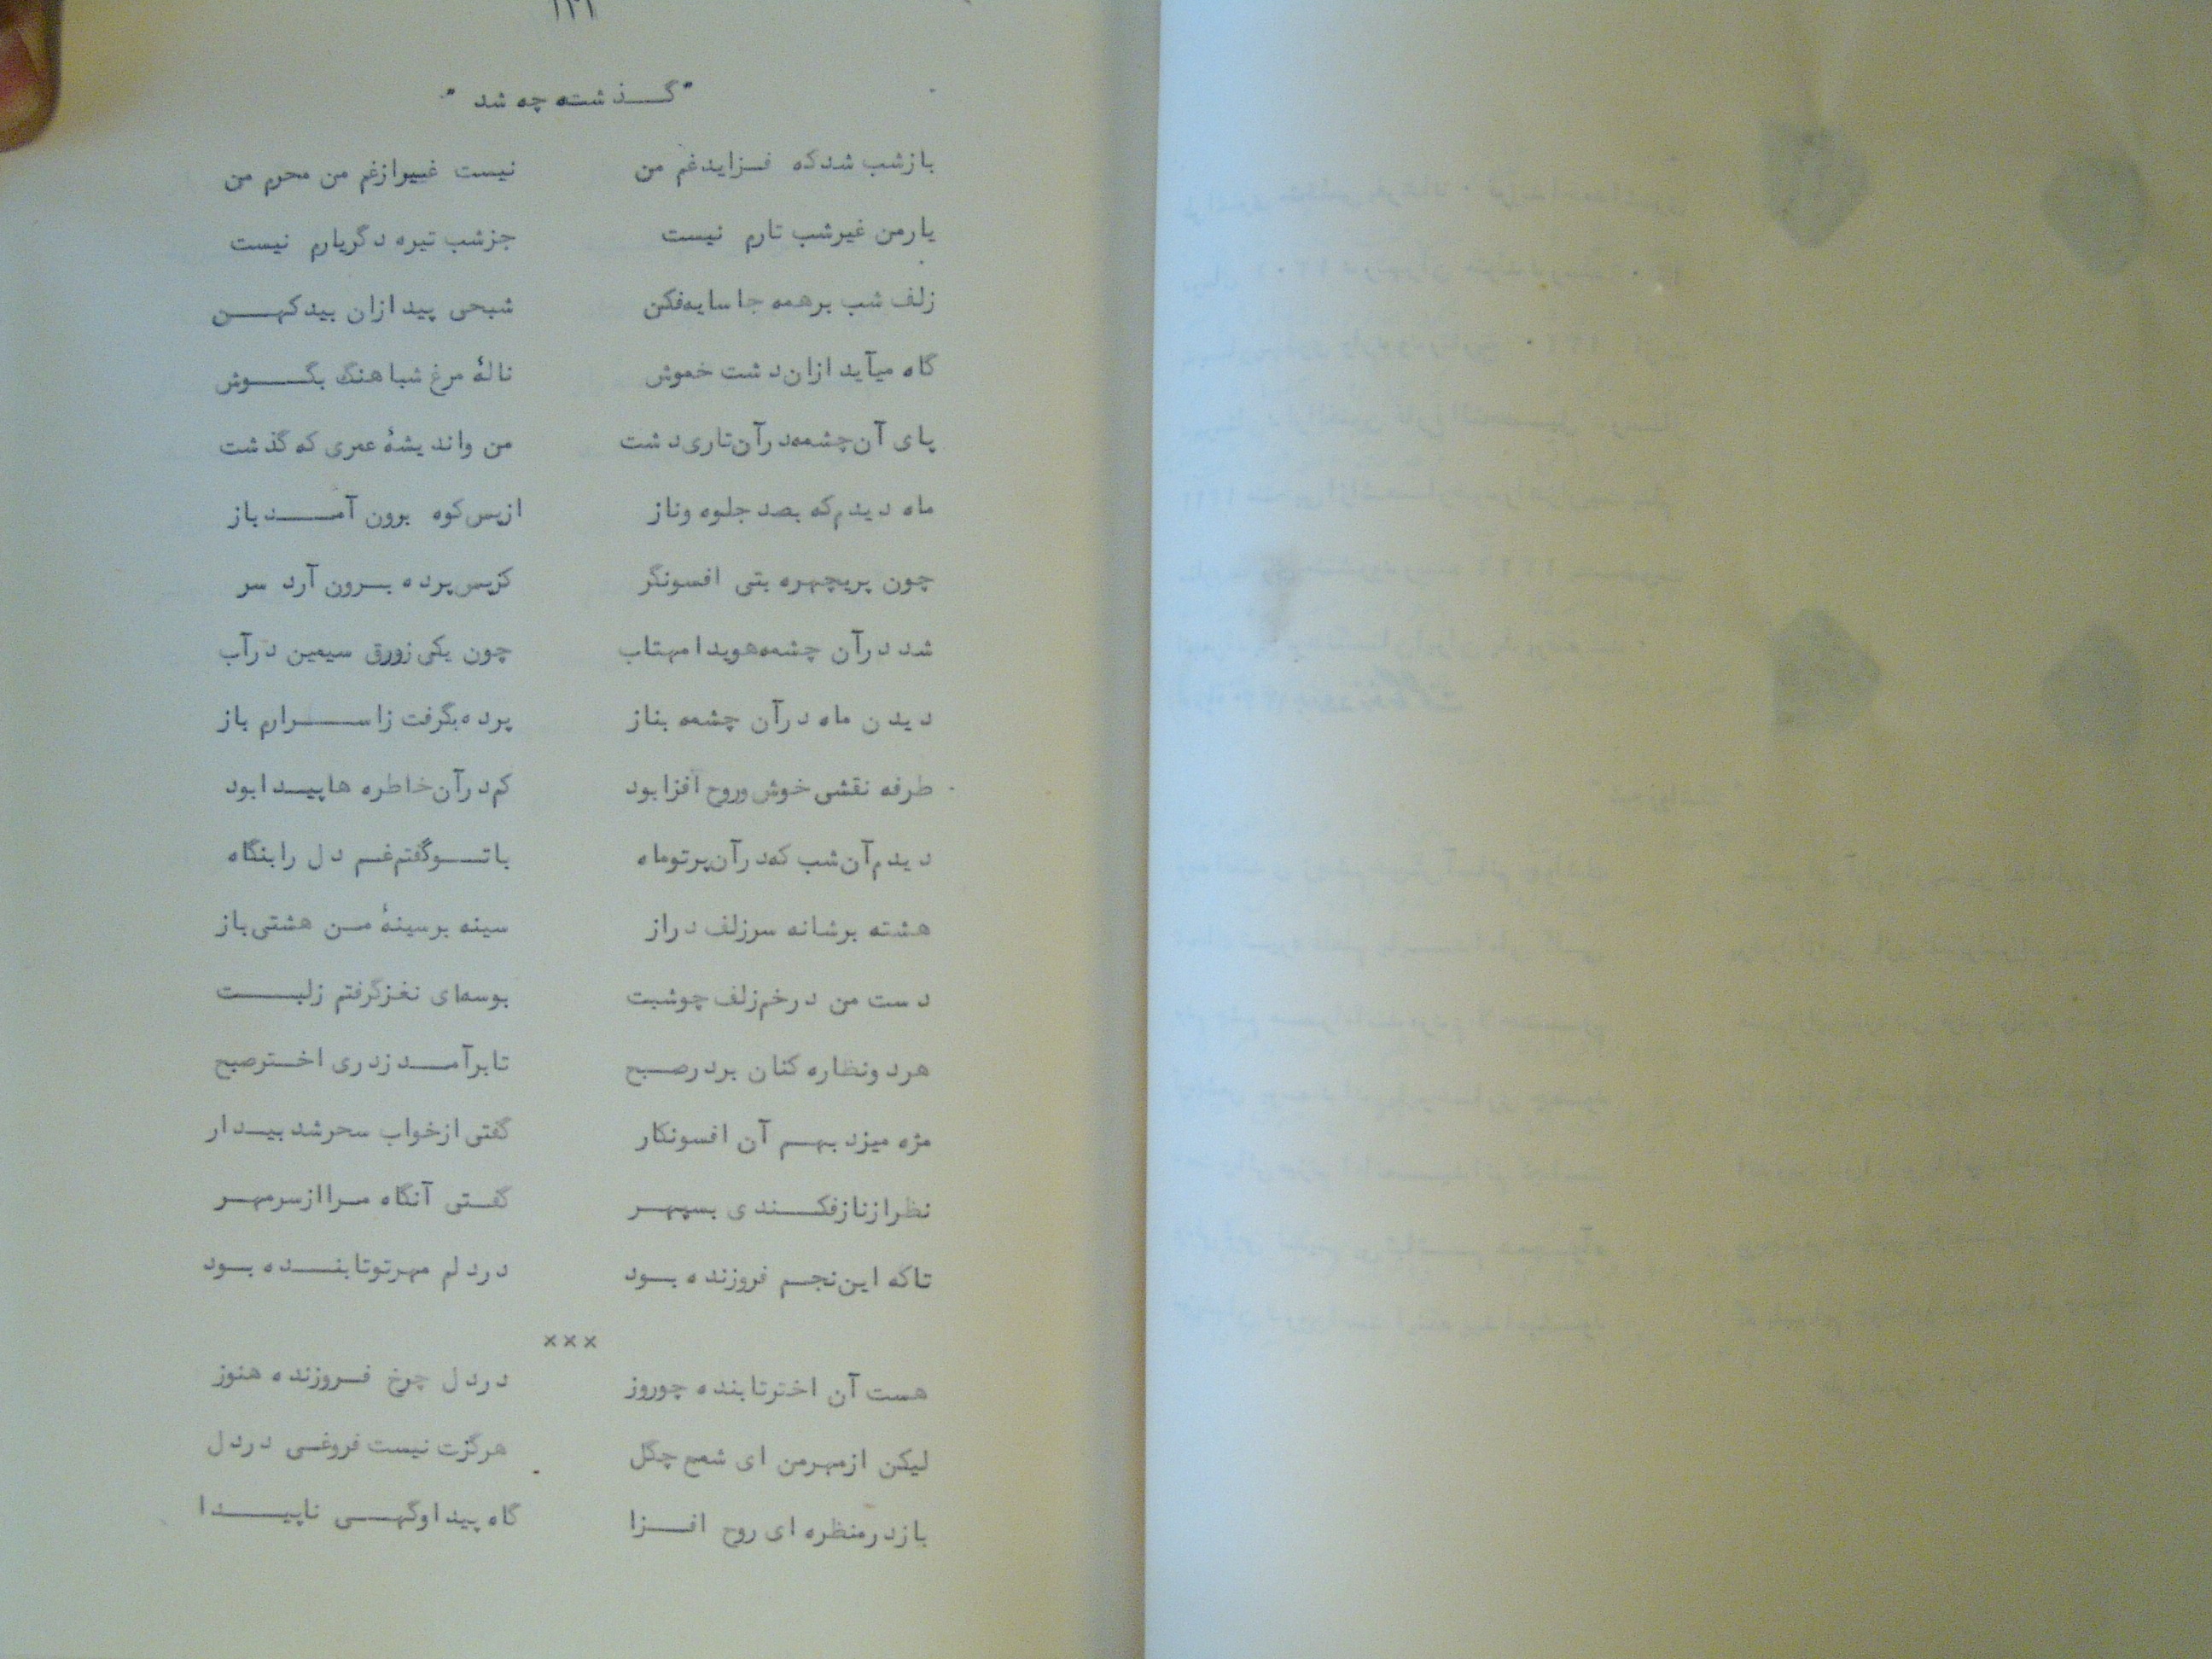 "گذشته چه شد"
باز شب شد که فزاید غم من    نیست غیر از غم من محرم من
یار من غیر شب تارم نیست    جز شب تیره دگر یارم نیست
زلف شب بر همه جا سایه فکن    شبحی پیدا زان بید کهن
گاه میآید ازان دشت خموش    نالهٔ مرغ شباهنگ بگوش
پای آن چشمه در آن تاری دشت    من و اندیشهٔ عمری که گذشت
ماه دیدم که بصد جلوه و ناز    از پس کوه برون آمد باز
چون پریچهره بتی افسونگر    کز پس پرده برون آرد سر
شد در آن چشمه هویدا مهتاب    چون یکی زورق سیمین در آب
دیدن ماه در آن چشمه بناز    پرده بگرفت ز اسرارم باز
طرفه نقشی خوش و روح افزا بود    کم در آن خاطره ها پیدا بود
دیدم آن شب که در آن پرتو ماه    با تو گفتم غم دل را بنگاه
هشته بر شانه سر زلف دراز    سینه بر سینهٔ من هشتی باز
دست من در خم زلف چو شبت    بوسه‌ای نغز گرفتم ز لبت
هر دو نظاره کنان بر در صبح    تا برآمد ز دری اختر صبح
مژه میزد بهم آن افسونکار    گفتی از خواب سحر شد بیدار
نظر از ناز فکندی بسپهر    گفتی آنگاه مرا از سر مهر
تا که این نجم فروزنده بود    در دلم مهر تو تابنده بود
×××
هست آن اختر تابنده چو روز    در دل چرخ فروزنده هنوز
لیکن از مهر من ای شمع چگل    هرگزت نیست فروغی در دل
باز در منظره ای روح افزا    گاه پیدا و گهی ناپیدا